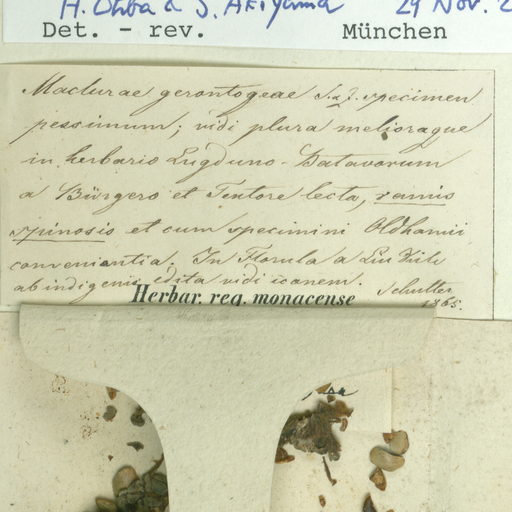 H. Ohba & S. Akiyama 29 Nov. 2
Det. - rev. München
Maclurae gerontogeae S. & Z. specimen
pessimum; vidi plura melioraque
in herbario Lugduno-Batavorum
a Bürgero et Textore lecta, ramis
spinosis et cum specimini Oldhamii
convenientia. In Florula a Liu Kiu
ab indigenis edita vidi iconem. Schultes
1865.
Herbar. reg. monacense